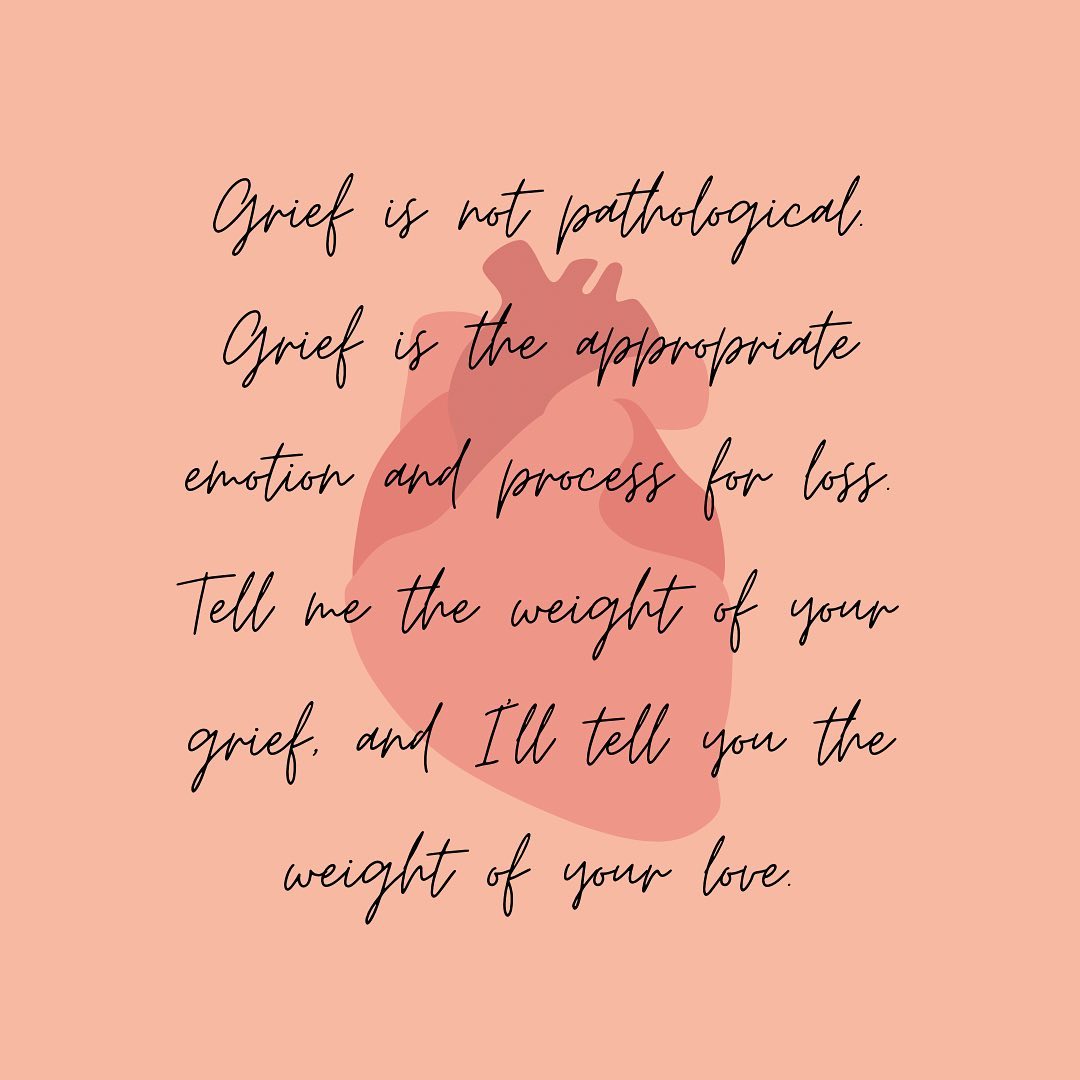 Grief is not pathological.
Grief is the appropriate
emotion and process for loss.
Tell me the weight of your
grief, and I'll tell you the
weight of your love.